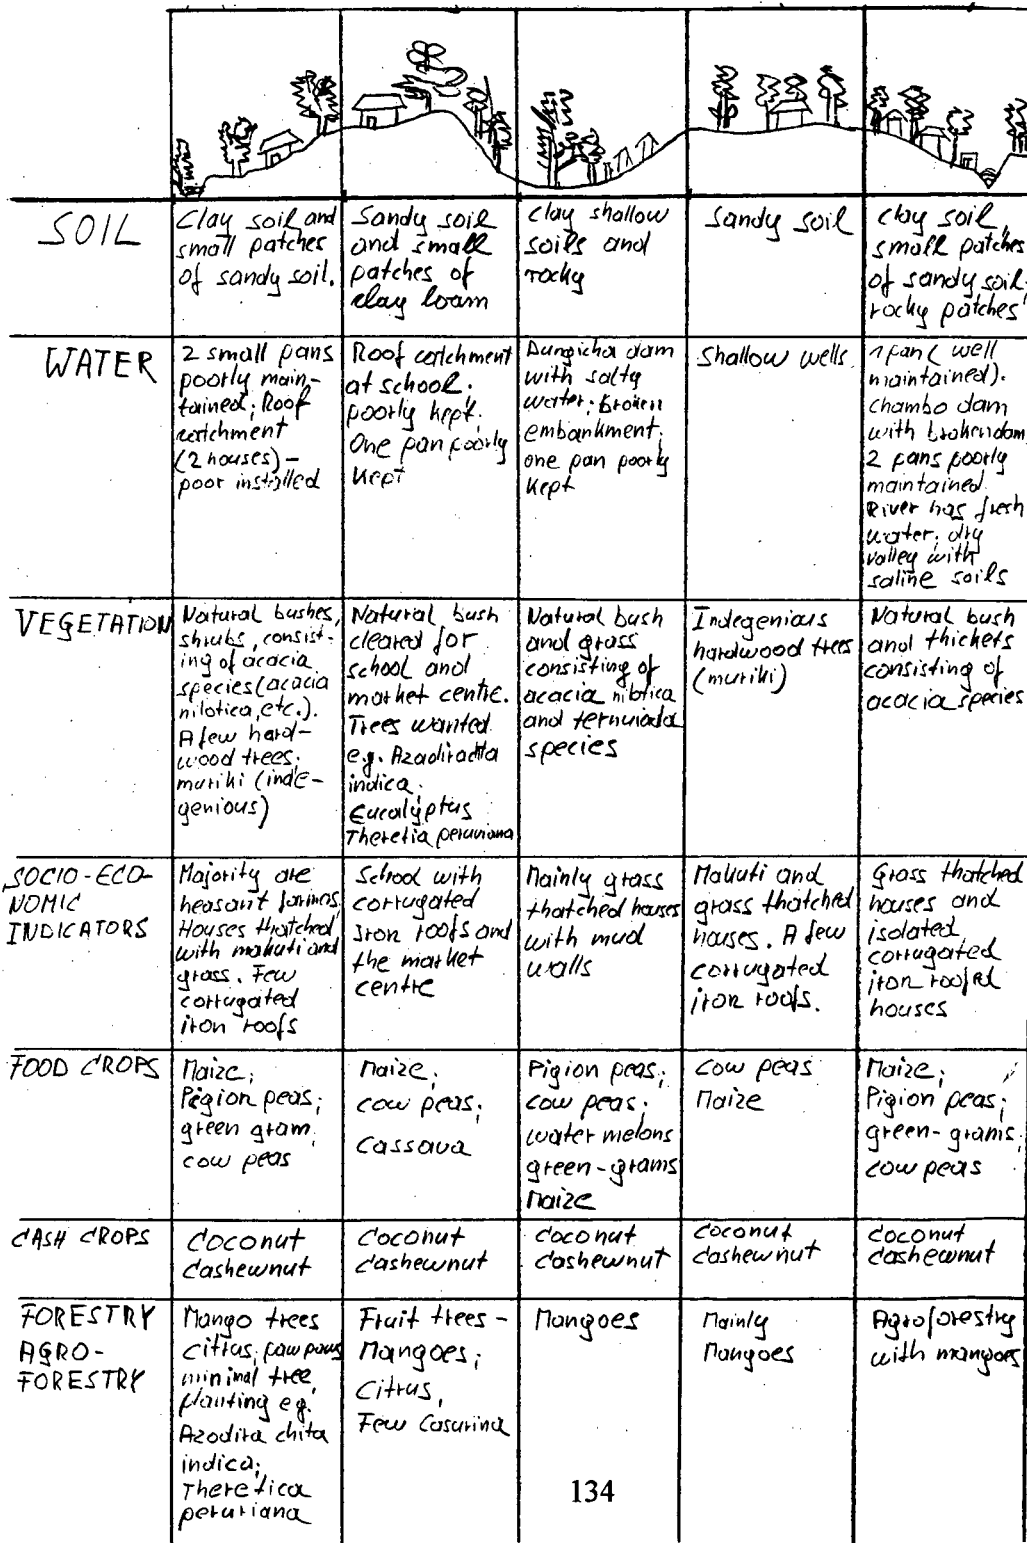 SOIL
Clay soil and
small patches
of sandy soil.
Sandy soil
and small
patches of
clay loam
clay shallow
soils and
rocky
Sandy soil
clay soil,
small patches
of sandy soil.
rocky patches
WATER
2 small pans
poorly main-
tained; Roof
catchment
(2 houses) -
poor installed
Roof catchment
at school.
poorly kept.
One pan poorly
kept
Dungicha dam
with salty
water; broken
embankment.
one pan poorly
kept
Shallow wells.
1 pan (well
maintained).
Chambo dam
with broken dam
2 pans poorly
maintained.
River has fresh
water. dry
valley with
saline soils
VEGETATION
Natural bushes,
shrubs, consist-
ing of acacia
species (acacia
nilotica, etc.).
A few hard-
wood trees.
muriki (inde-
genious)
Natural bush
cleared for
school and
market centre.
Trees wanted
e.g. Azadiradta
indica.
Eucalyptus
Theretia peruviana
Natural bush
and grass
consisting of
acacia nilotica
and
species
Indegenious
hardwood trees
(muriki)
Natural bush
and thickets
consisting of
acacia species
SOCIO-ECO-
NOMIC
INDICATORS
Majority are
heasant farmers.
Houses thatched
with makuti and
grass. Few
corrugated
iron roofs
School with
corrugated
Iron roofs and
the market
centre
Mainly grass
thatched houses
with mud
walls
Makuti and
grass thatched
houses. A few
corrugated
iron roofs.
Grass thatched
houses and
isolated
corrugated
iron roofed
houses
FOOD CROPS
Maize;
Pigion peas;
green gram;
cow peas
Maize;
cow peas;
Cassava
Pigion peas;
cow peas;
water melons
green-grams
Maize
Cow peas
Maize
Maize;
Pigion peas;
green-grams;
cow peas
CASH CROPS
Coconut
Cashewnut
Coconut
Cashewnut
Coconut
Cashewnut
Coconut
Cashewnut
Coconut
Cashewnut
FORESTRY
AGRO-
FORESTRY
Mango trees
citrus, paw paws
minimal tree
planting e.g.
Azodira chita
indica;
Theretica
peruriana
Fruit trees -
Mangoes;
Citrus,
Few Casurina
Mangoes
Mainly
Mangoes
Agroforestry
with mangoes
134